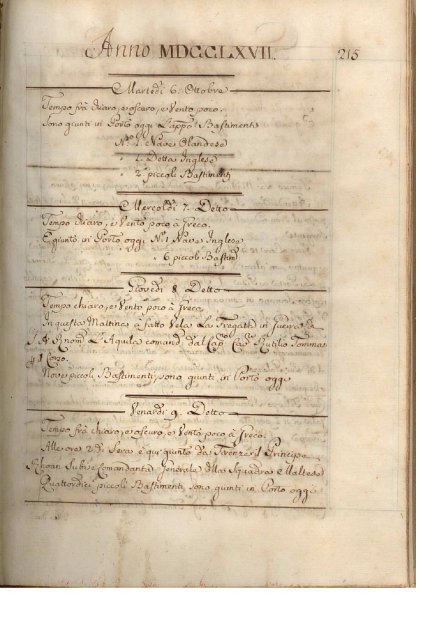 Anno MDCCLXVII. 215
Martedì 6. Ottobre
Tempo frà chiaro, e oscuro, e Vento poco.
Sono giunti in Porto oggi L'app.i Bastimenti
N.o 1. Nave Olandese
1. Detta Inglese
2. piccoli Bastimenti
Mercoldì 7. Detto
Tempo chiaro, e Vento poco à Greco.
È giunto in Porto oggi N.o 1 Nave Inglese
6 piccoli Bastim
Giovedì 8 Detto
Tempo chiaro, e Vento poco à Greco
In questa Mattina à fatto Vela La Fregatta in Guerra
L'Aquila comand. dal Rutilio Tommas
Nove piccoli Bastimenti, sono giunti in Porto oggi
Venardì 9. Detto
Tempo frà chiaro, e oscuro, e Vento poco à Greco.
Alle ore 2 di Sera è qui giunto da Firenze Principe
Rhoan Comandante Generale Squadra Maltese
Quattordici piccoli Bastimenti, sono giunti in Porto oggi